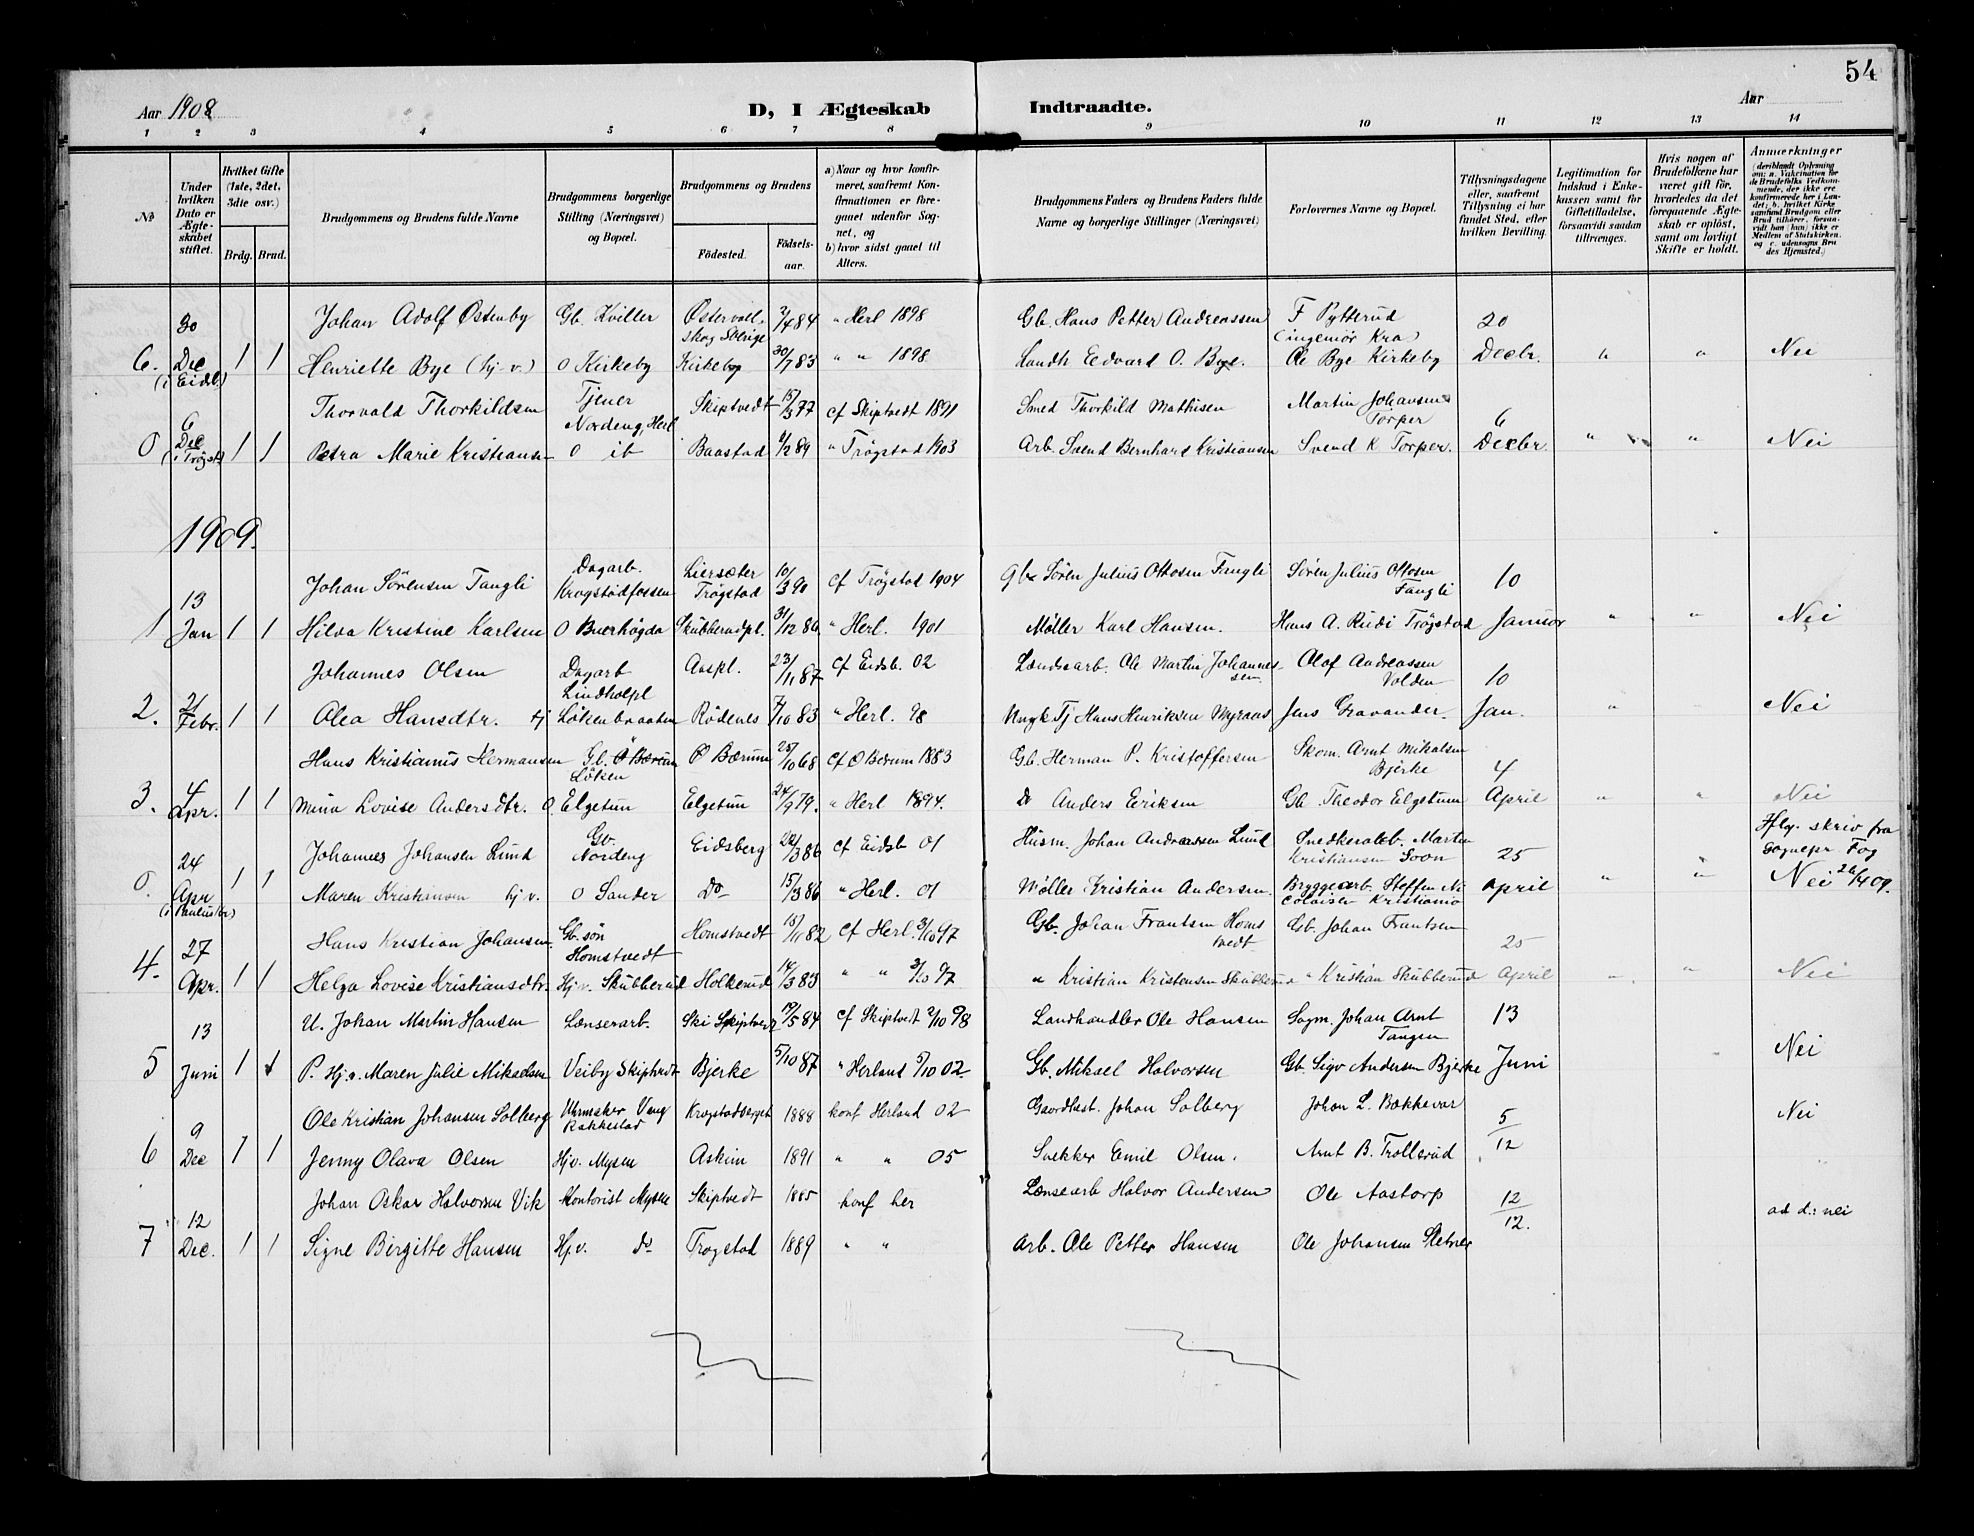 54
Aar 1908
D, I Ægteskab Indtraadte.
Aar
1 2 3 4 5 6 7 8 9 10 11 12 13 14
No
Under hvilken Dato er Ægteskabet stiftet.
Hvilket Gifte (1ste, 2det, 3die osv.)
Brdg. Brud.
Brudgommens og Brudens fulde Navne
Brudgommens borgerlige Stilling (Næringsvei) og Bopæl.
Brudgommens og Brudens
Födested.
Födselsaar.
a) Naar og hvor konfirmeret, saafremt Konfirmationen er foregaaet udenfor Sognet, og
b) hvor sidst gaaet til Alters.
Brudgommens Faders og Brudens Faders fulde Navne og borgerlige Stillinger (Næringsvei)
Forlovernes Navne og Bopæl.
Tillysningsdagene eller, saafremt Tillysning ei har fundet Sted, efter hvilken Bevilling.
Legitimation for Indskud i Enkekassen samt for Giftetilladelse, forsaavidt saadan tiltrænges.
Hvis nogen af Brudefolkene har været gift för, hvorledes da det foregaaende Ægteskab er oplöst, samt om lovligt Skifte er holdt.
Anmærkninger
30 Johan Adolf Østenby Gb. Kviller Østervallskog Sverige 2/4 84 " Herl 1898 Gb. Hans Petter Andreassen F Pytterud (ingeniør Kra) 20
6. Dec (i Eidb.) 1 1 Henriette Bye (hj. v.) O Kirkeby Kirkeby 30/7 83 " " 1898 Landh Edvard O. Bye. Ole Bye Kirkeby Decbr. " " Nei
6 Thorvald Thorkildsen Tjener Nordeng, Herl Skiptvedt 15/3 77 cf Skiptvedt 1891 Smed Thorkild Mathisen Martin Johansen Torper 6
0 Dec (i Trøgst) 1 1 Petra Marie Kristiansen O ib Baastad 9/2 89 " Trøgstad 1903 Arb. Svend Bernhard Kristiansen Svend K Torper. Decbr. " " Nei
1909.
13 Johan Sörensen Fangli Dagarb. Krogstadfossen Liersæter Trøgstad 10/3 90 cf Trøgstad 1904 Gb. Sören Julius Ottosen Fangli Sören Julius Ottosen Fangli 10
1 Jan 1 1 Hilda Kristine Karlsen O Buerhögda Skubberudpl. 31/12 86 " Herl. 1901 Møller Karl Hansen. Hans A. Rudi Trögstad Januar " " Nei
21 Johannes Olsen Dagarb Lindholpl Aaspl. 23/11 87 cf Eidsb. 02 Lænsearb. Ole Martin Johannessen Olaf Andreassen Volden 10
2. Febr. 1 1 Olea Hansdtr. tj Lökenbraaten Rödenes 7/10 83 " Herl. 98 Ungk Tj Hans Henriksen Myraas Jens Gravander. Jan. " " Nei
4 Hans Kristianus Hermansen Gb. Ø Bærum Löken Ø Bærum 25/10 68 cf Ø Bærum 1883 Gb. Herman P. Kristoffersen Skom. Arnt Mikalsen Bjerke 4
3. Apr. 1 1 Mina Lovise Andersdtr. O. Elgetun Elgetun 24/9 79. " Herl 1894. Do Anders Eriksen Gb Theodor Elgetum April " " Nei
24 Johannes Johansen Lund Gb. Nordeng Eidsberg 26/3 86 cf Eidsb 01 Husm. Johan Andreassen Lund Snedkerarb. Martin Kristiansen Soon 25 Iflg. skriv fra Sognepr. Fog
0. Apr (i Pauluskr) 1 1 Maren Kristiansen hj v. O Sander Do 15/3 86 " Herl. 01 Møller Kristian Andersen. Bryggearb. Steffen Nicolaisen Kristiania April " " Nei 26/4 09.
27 Hans Kristian Johansen Gb. søn Homstvedt Homstvedt 15/11 82 cf Herl. 3/10 97 Gb. Johan Frantsen Homstvedt Gb. Johan Frantsen 25
4. Apr. 1 1 Helga Lovise Kristiansdtr. Hj. v. Skubberud Holkerud 14/3 83 " " 3/10 97 " Kristian Kristensen Skubberud " Kristian Skubberud April " " Nei
13 U. Johan Martin Hansen Lænsearb. Ski Skiptvedt 19/5 84 cf Skiptvedt 2/10 98 Landhandler Ole Hansen Sagm. Johan Arnt Tangen 13
5 Juni 1 1 P. Hj. v. Maren Julie Mikaelsen Veiby Skiptvedt Bjerke 5/10 87 " Herland 5/10 02 Gb. Mikael Halvorsen Gb. Sigv Andersen Bjerke Juni Nei
9 Ole Kristian Johansen Solberg Uhrmaker Vang Rakkestad Krogstadberget 1888 konf Herland 02 Gaardbest. Johan Solberg Johan L. Bakkevar 5/12 Nei
6 Dec 1 1 Jenny Olava Olsen Hj.v. Mysen Askim 1891 " " 05 Snekker Emil Olsen. Arnt B. Trollerud
12 Johan Oskar Halvorsen Vik Kontorist Mysen Skiptvedt 1885 konf her Lænsearb Halvor Andersen Ole Aastorp 12/12. ad d.: nei
7 Dec. 1 1 Signe Birgitte Hansen Hj.v. Do Trøgstad 1889 " " Arb. Ole Petter Hansen Ole Johansen Sletner